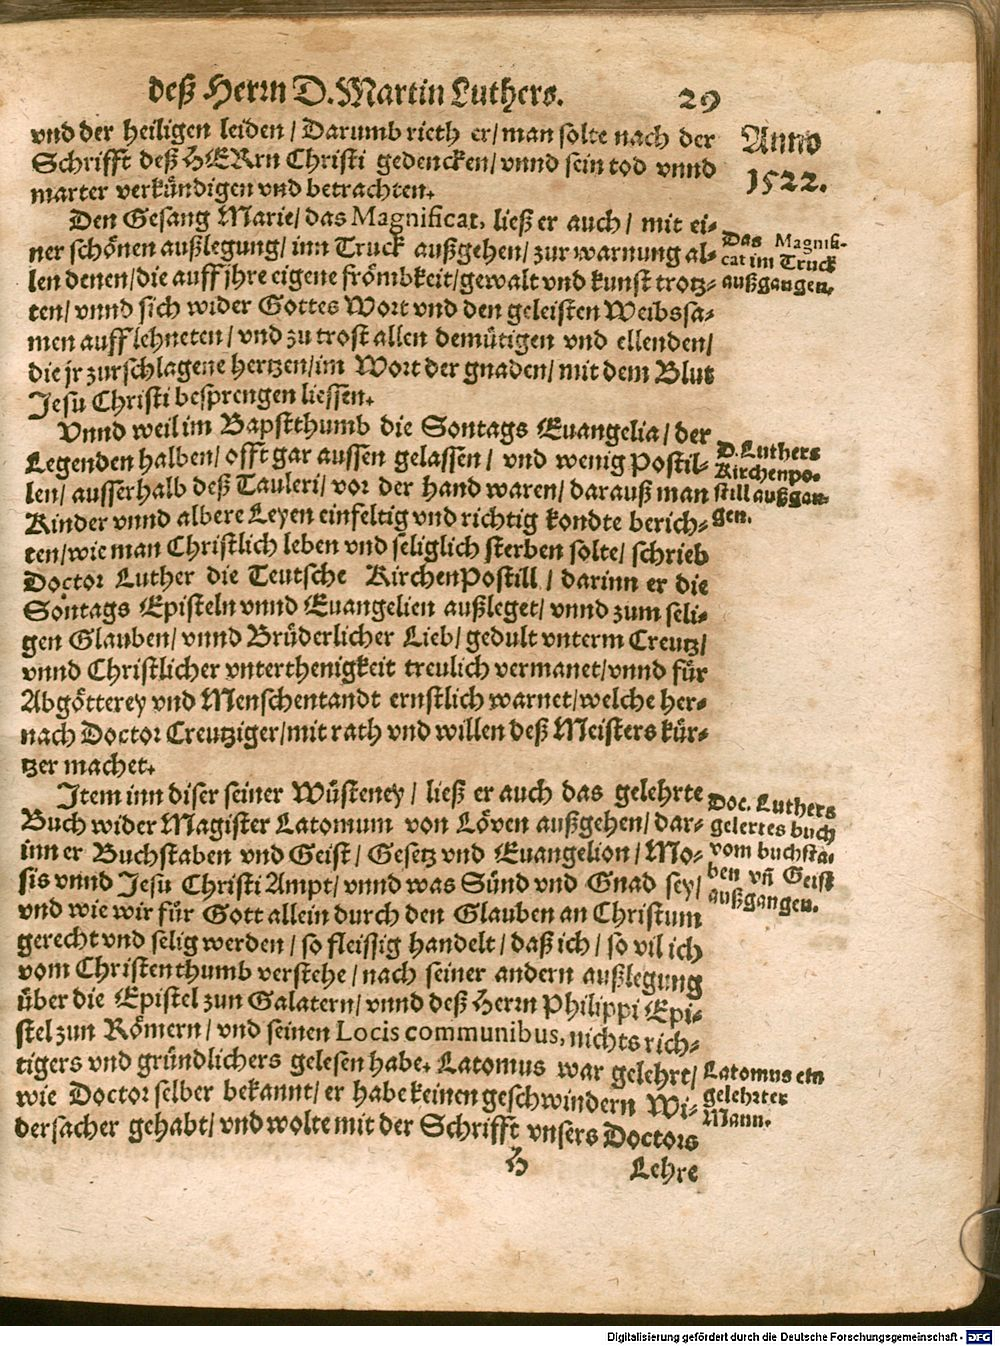 deß Herrn D. Martin Luthers. 29
vnd der heiligen leiden / Darumb rieth er / man solte nach der
Schrifft deß HERrn Christi gedencken / vnnd sein tod vnnd
marter verkündigen vnd betrachten.
Anno
1522.
Den Gesang Marie / das Magnificat, ließ er auch / mit ei-
ner schönen außlegung / inn Truck außgehen / zur warnung al-
len denen / die auff jhre eigene frömbkeit / gewalt vnd kunst trotz-
ten / vnnd sich wider Gottes Wort vnd den geleisten Weibssa-
men aufflehneten / vnd zu trost allen demütigen vnd ellenden /
die jr zurschlagene hertzen / im Wort der gnaden / mit dem Blut
Jesu Christi besprengen liessen.
Das Magnifi-
cat im Truck
außgangen.
Vnnd weil im Bapstthumb die Sontags Euangelia / der
Legenden halben / offt gar aussen gelassen / vnd wenig Postil-
len / ausserhalb deß Tauleri / vor der hand waren / darauß man
Kinder vnnd albere Leyen einfeltig vnd richtig kondte berich-
ten / wie man Christlich leben vnd seliglich sterben solte / schrieb
Doctor Luther die Teutsche KirchenPostill / darinn er die
Sontags Episteln vnnd Euangelien außleget / vnnd zum seli-
gen Glauben / vnnd Brüderlicher Lieb / gedult vnterm Creutz /
vnnd Christlicher vnterthenigkeit treulich vermanet / vnnd für
Abgötterey vnd Menschentandt ernstlich warnet / welche her-
nach Doctor Creutziger / mit rath vnd willen deß Meisters kür-
tzer machet.
D. Luthers
Kirchenpo-
still außgan-
gen.
Item inn diser seiner Wüsteney / ließ er auch das gelehrte
Buch wider Magister Latomum von Löven außgehen / dar-
inn er Buchstaben vnd Geist / Gesetz vnd Euangelion / Mo-
sis vnnd Jesu Christi Ampt / vnnd was Sünd vnd Gnad sey /
vnd wie wir für Gott allein durch den Glauben an Christum
gerecht vnd selig werden / so fleissig handelt / daß ich / so vil ich
vom Christenthumb verstehe / nach seiner andern außlegung
über die Epistel zun Galatern / vnnd deß Herrn Philippi Epi-
stel zun Römern / vnd seinen Locis communibus, nichts rich-
tigers vnd gründlichers gelesen habe. Latomus war gelehrt /
wie Doctor selber bekannt / er habe keinen geschwindern Wi-
dersacher gehabt / vnd wolte mit der Schrifft vnsers Doctors
Doc. Luthers
gelertes buch
vom buchsta-
ben vñ Geist
außgangen.
Latomus ein
gelehrter
Mann.
H Lehre
Digitalisierung gefördert durch die Deutsche Forschungsgemeinschaft - DFG